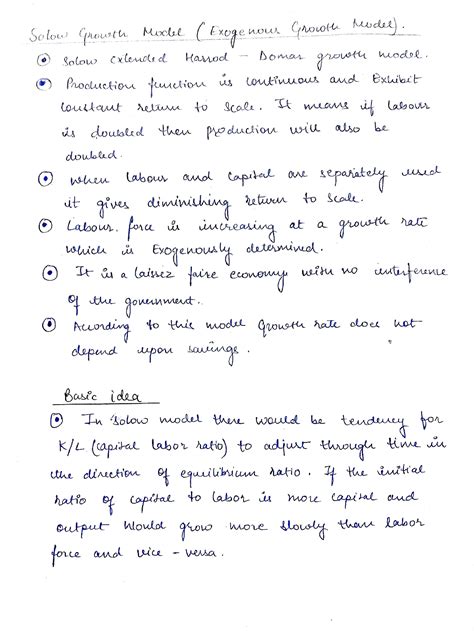 Solow Growth Model (Exogenous Growth Model).
Solow extended Harrod - Domar growth model.
Production function is continuous and Exhibit
constant return to scale. It means if labour
is doubled then production will also be
doubled.
when labour and capital are separately used
it gives diminishing return to scale.
Labour force is increasing at a growth rate
which is Exogenously determined.
It is a laissez faire economy with no interference
of the government.
According to this model Growth rate does not
depend upon savings.
Basic idea
In Solow model there would be tendency for
K/L (capital labor ratio) to adjust through time in
the direction of equilibrium ratio. If the initial
ratio of capital to labor is more capital and
output would grow more slowly than labor
force and vice - versa.